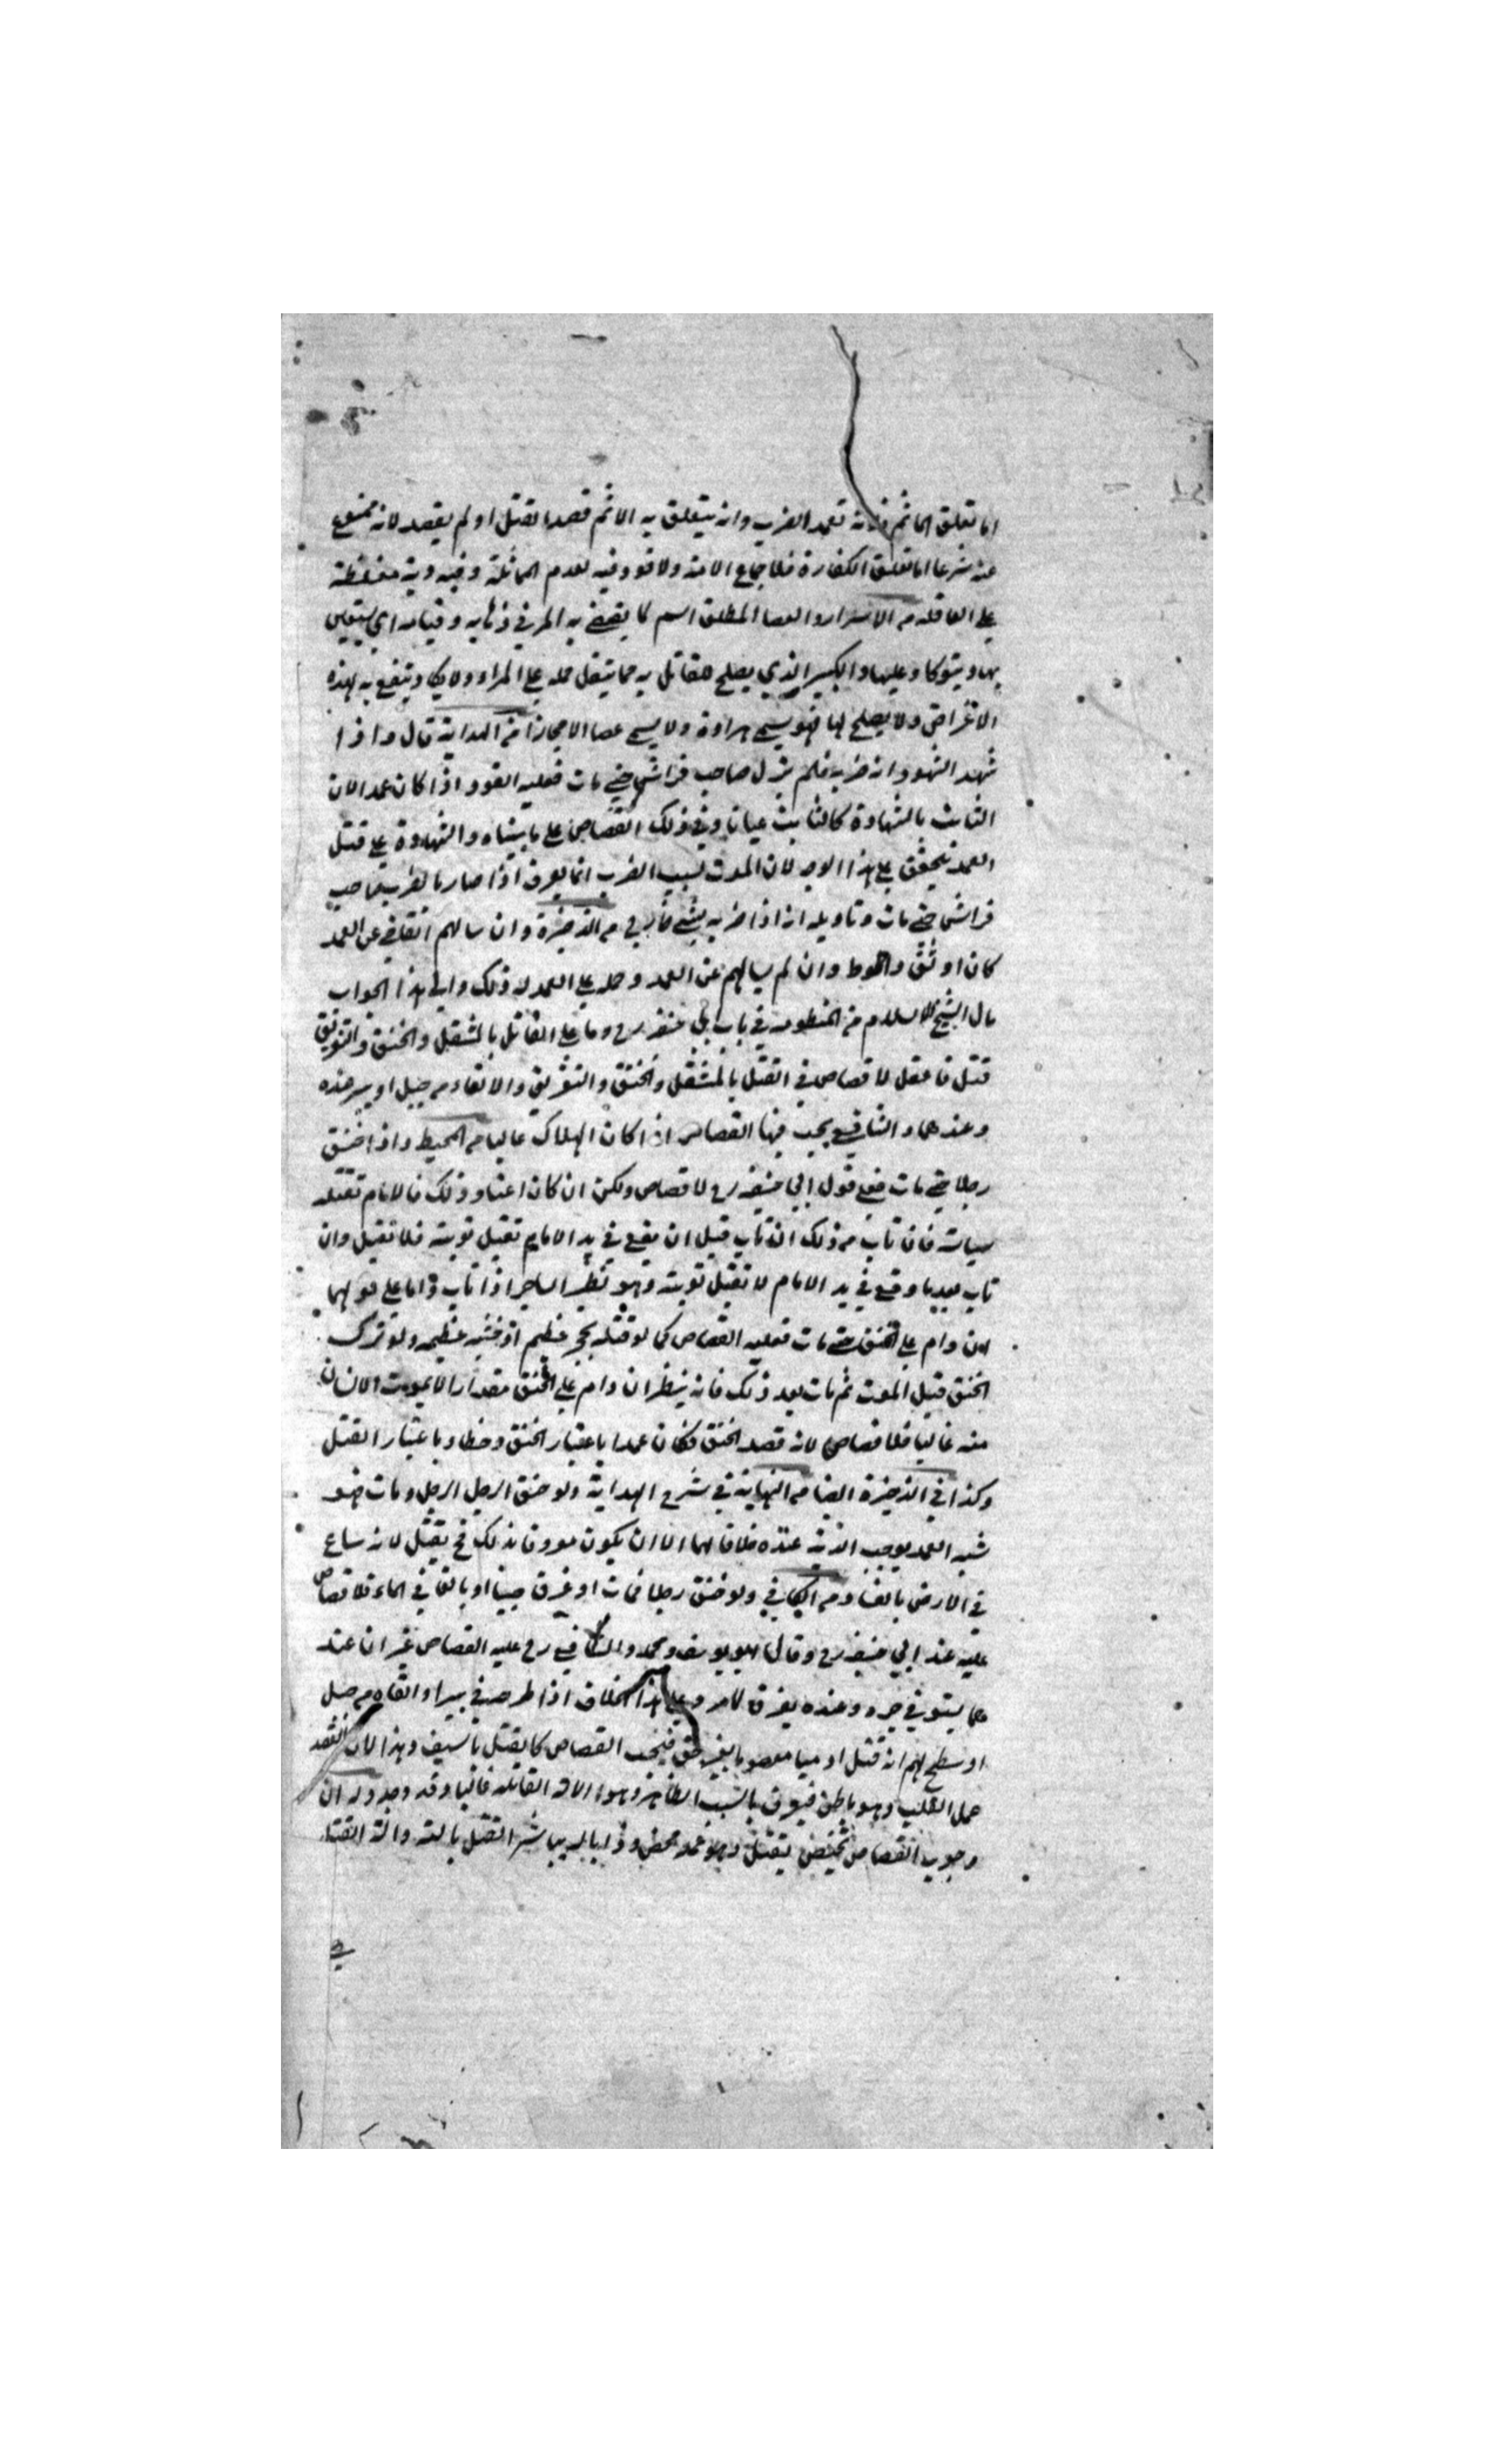 اما تعلق الماثم فلانه تعمد الضرب وانه يتعلق به الاثم قصد القتل او لم يقصد لانه ممنوع
عنه شرعا اما تعلق الكفارة فلاجماع الامة ولا قود فيه لعدم المماثلة وفيه دية مغلظة
على العاقله من الاسرار والعصا المطلق اسم لما يقضي به المرء في ذهابه وقيامه اي يستعين
بها ويتوكاء عليها والكبير الذي يصلح للقتل به مما يثقل حمله على المراء ولا ينتفع به لهذه
الاغراض ولا يصلح لها فهو يسمى هراوة ولا يسمى عصا الا مجازا من الهداية قال واذا
شهد الشهود انه ضربه فلم يزل صاحب فراش حتى مات فعليه القود اذا كان عمدا لان
الثابت بالشهادة كالثابت عيانا وفي ذلك القصاص على ما بيناه والشهادة على قتل
العمد يتحقق على هذا الوجه لان الموت بسبب الضرب انما يعرف اذا صار بالضرب صاحب
فراش حتى مات وتاويله انه اذا ضربه بشيء جارح من الذخيرة وان سالهم القاضي عن العمد
كان اوثق واحوط وان لم يسالهم عن العمد وحمله على العمد له ذلك والى هذا الجواب
مال الشيخ الاسلام من المنظومة في باب ابي حنيفه رح وما على القاتل بالمثقل والخنق والتغريق
قتل فاعقل لا قصاص في القتل بالمثقل والخنق والتغريق والالقاء من جبل او بير عنده
وعندهما والشافعي يجب فيها القصاص اذا كان الهلاك غالبا من المحيط واذا خنق
رجلا حتى مات فعلى قول ابي حنيفه رح لا قصاص ولكن ان كان اعتاد ذلك فالامام تقتله
سياسة فان تاب من ذلك ان تاب قبل ان يقع في يد الامام تقبل توبته فلا تقتل وان
تاب بعد ما وقع في يد الامام لا تقبل توبته وهو نظير الساحر اذا تاب واما على قولهما
ان دام على الخنق حتى مات فعليه القصاص كما لو قتله بحجر عظيم او خشبه عظيمه ولو ترك
الخنق قبل الموت ثم مات بعد ذلك فانه ينظر ان دام على الخنق مقدار الا يموت الانسان
منه غالبا فلا قصاص لانه قصد الخنق فكان عمدا باعتبار الخنق وخطاء باعتبار القتل
وكذا في الذخيرة ايضا من النهاية في شرح الهداية ولو خنق الرجل الرجل ومات فهو
شبه العمد يوجب الدية عنده خلافا لهما الا ان يكون معروفا بذلك فح يقتل لانه ساع
في الارض بالفساد من الكافي ولو خنق رجلا فمات او غرق صبيا او بالغا في الماء فلا قصاص
عليه عند ابي حنيفه رح وقال ابو يوسف ومحمد والشافعي رح عليه القصاص غير ان عند
هما يستوفى جره وعنده يغرق كما مر وعلى هذا الخلاف اذا طرحه في بير او القاه من جبل
او سطح لهم انه قتل ادميا معصوما بغير حق فيجب القصاص كما يقتل بالسيف وهذا لان القصد
عمل القلب وهو باطن فيعرف بالسبب الظاهر وهو الالة القاتله غالبا وقد وجد وله ان
وجوب القصاص يختص بقتل وهو عمد محض وذا بان يباشر القتل بالته والة القتل